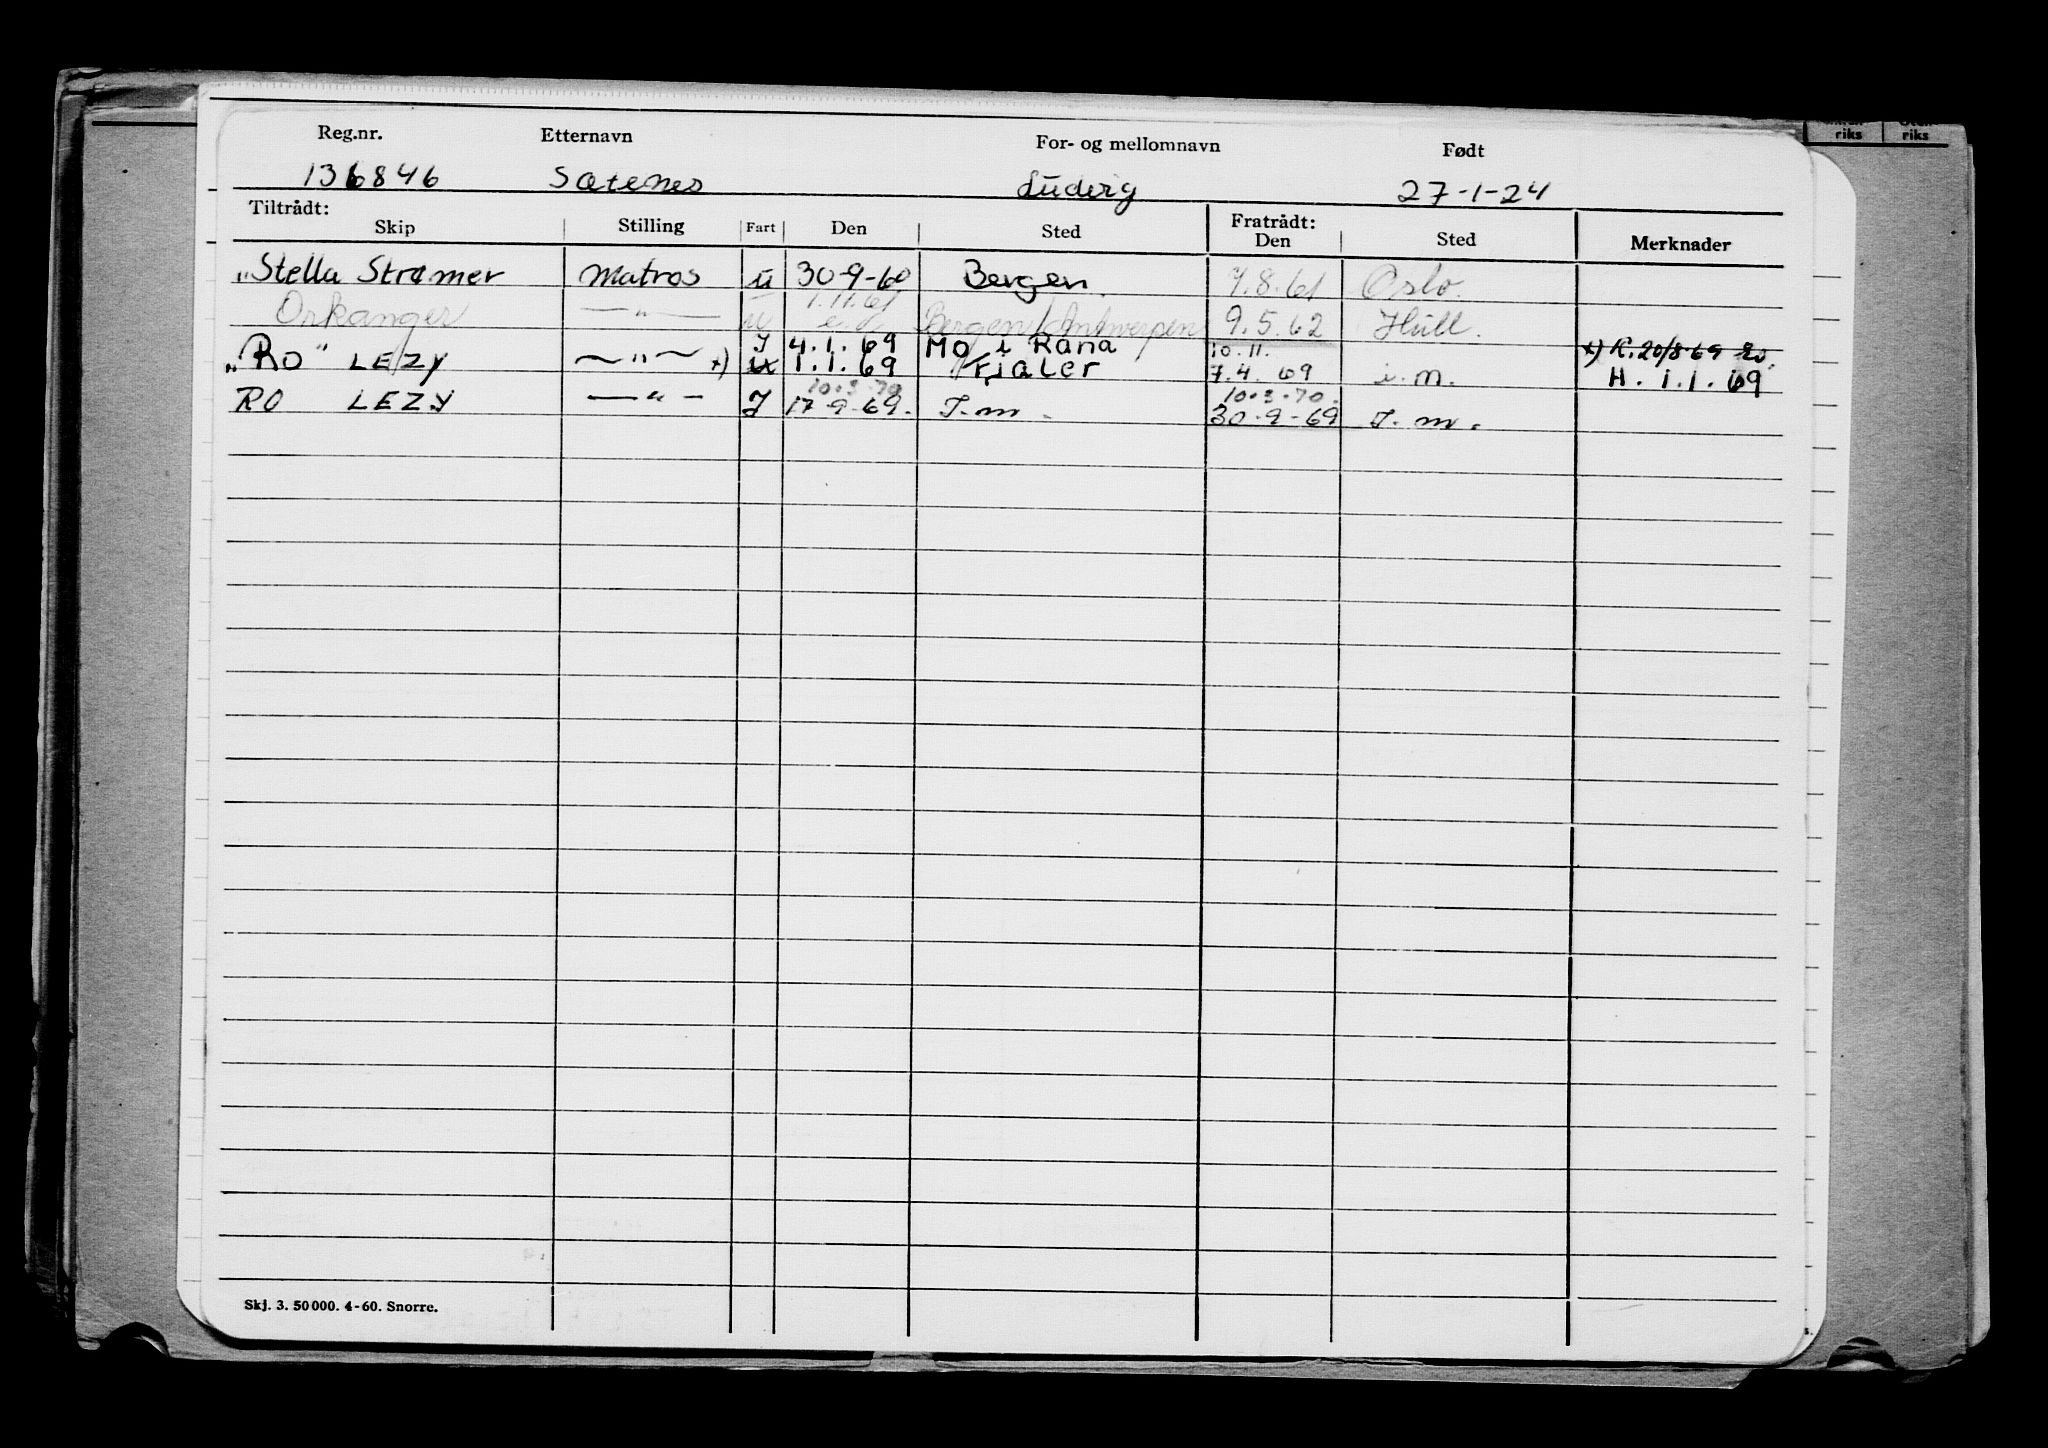 riks riks
Reg.nr. Etternavn For- og mellomnavn Født
136846 Sætenes Ludvig 27-1-24
Tiltrådt: Fratrådt:
Skip Stilling Fart Den Sted Den Sted Merknader
"Stella Strømer Matros u 30-9-60 Bergen. 7.8.61 Oslo.
1.11.61
Orkanger — " — u Bergen/Antwerpen 9.5.62 Hull.
J 4.1.69 Mo i Rana 10.11. x) K. 20/8 69
"RO" LEZY — " — x) 1.1.69 Fjaler 7.4.69 i.m. H. 1.1.69
10.3.70 10.3.70.
RO LEZY — " — J 17-9-69. I.m. 30-9-69 I.m.
Skj. 3. 50 000. 4-60. Snorre.